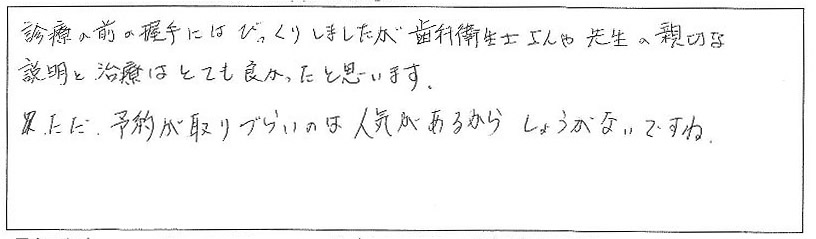 診療の前の握手にはびっくりしましたが歯科衛生士さんや先生の親切な
説明と治療はとても良かったと思います。
ただ、予約が取りづらいのは人気があるからしょうがないですね。